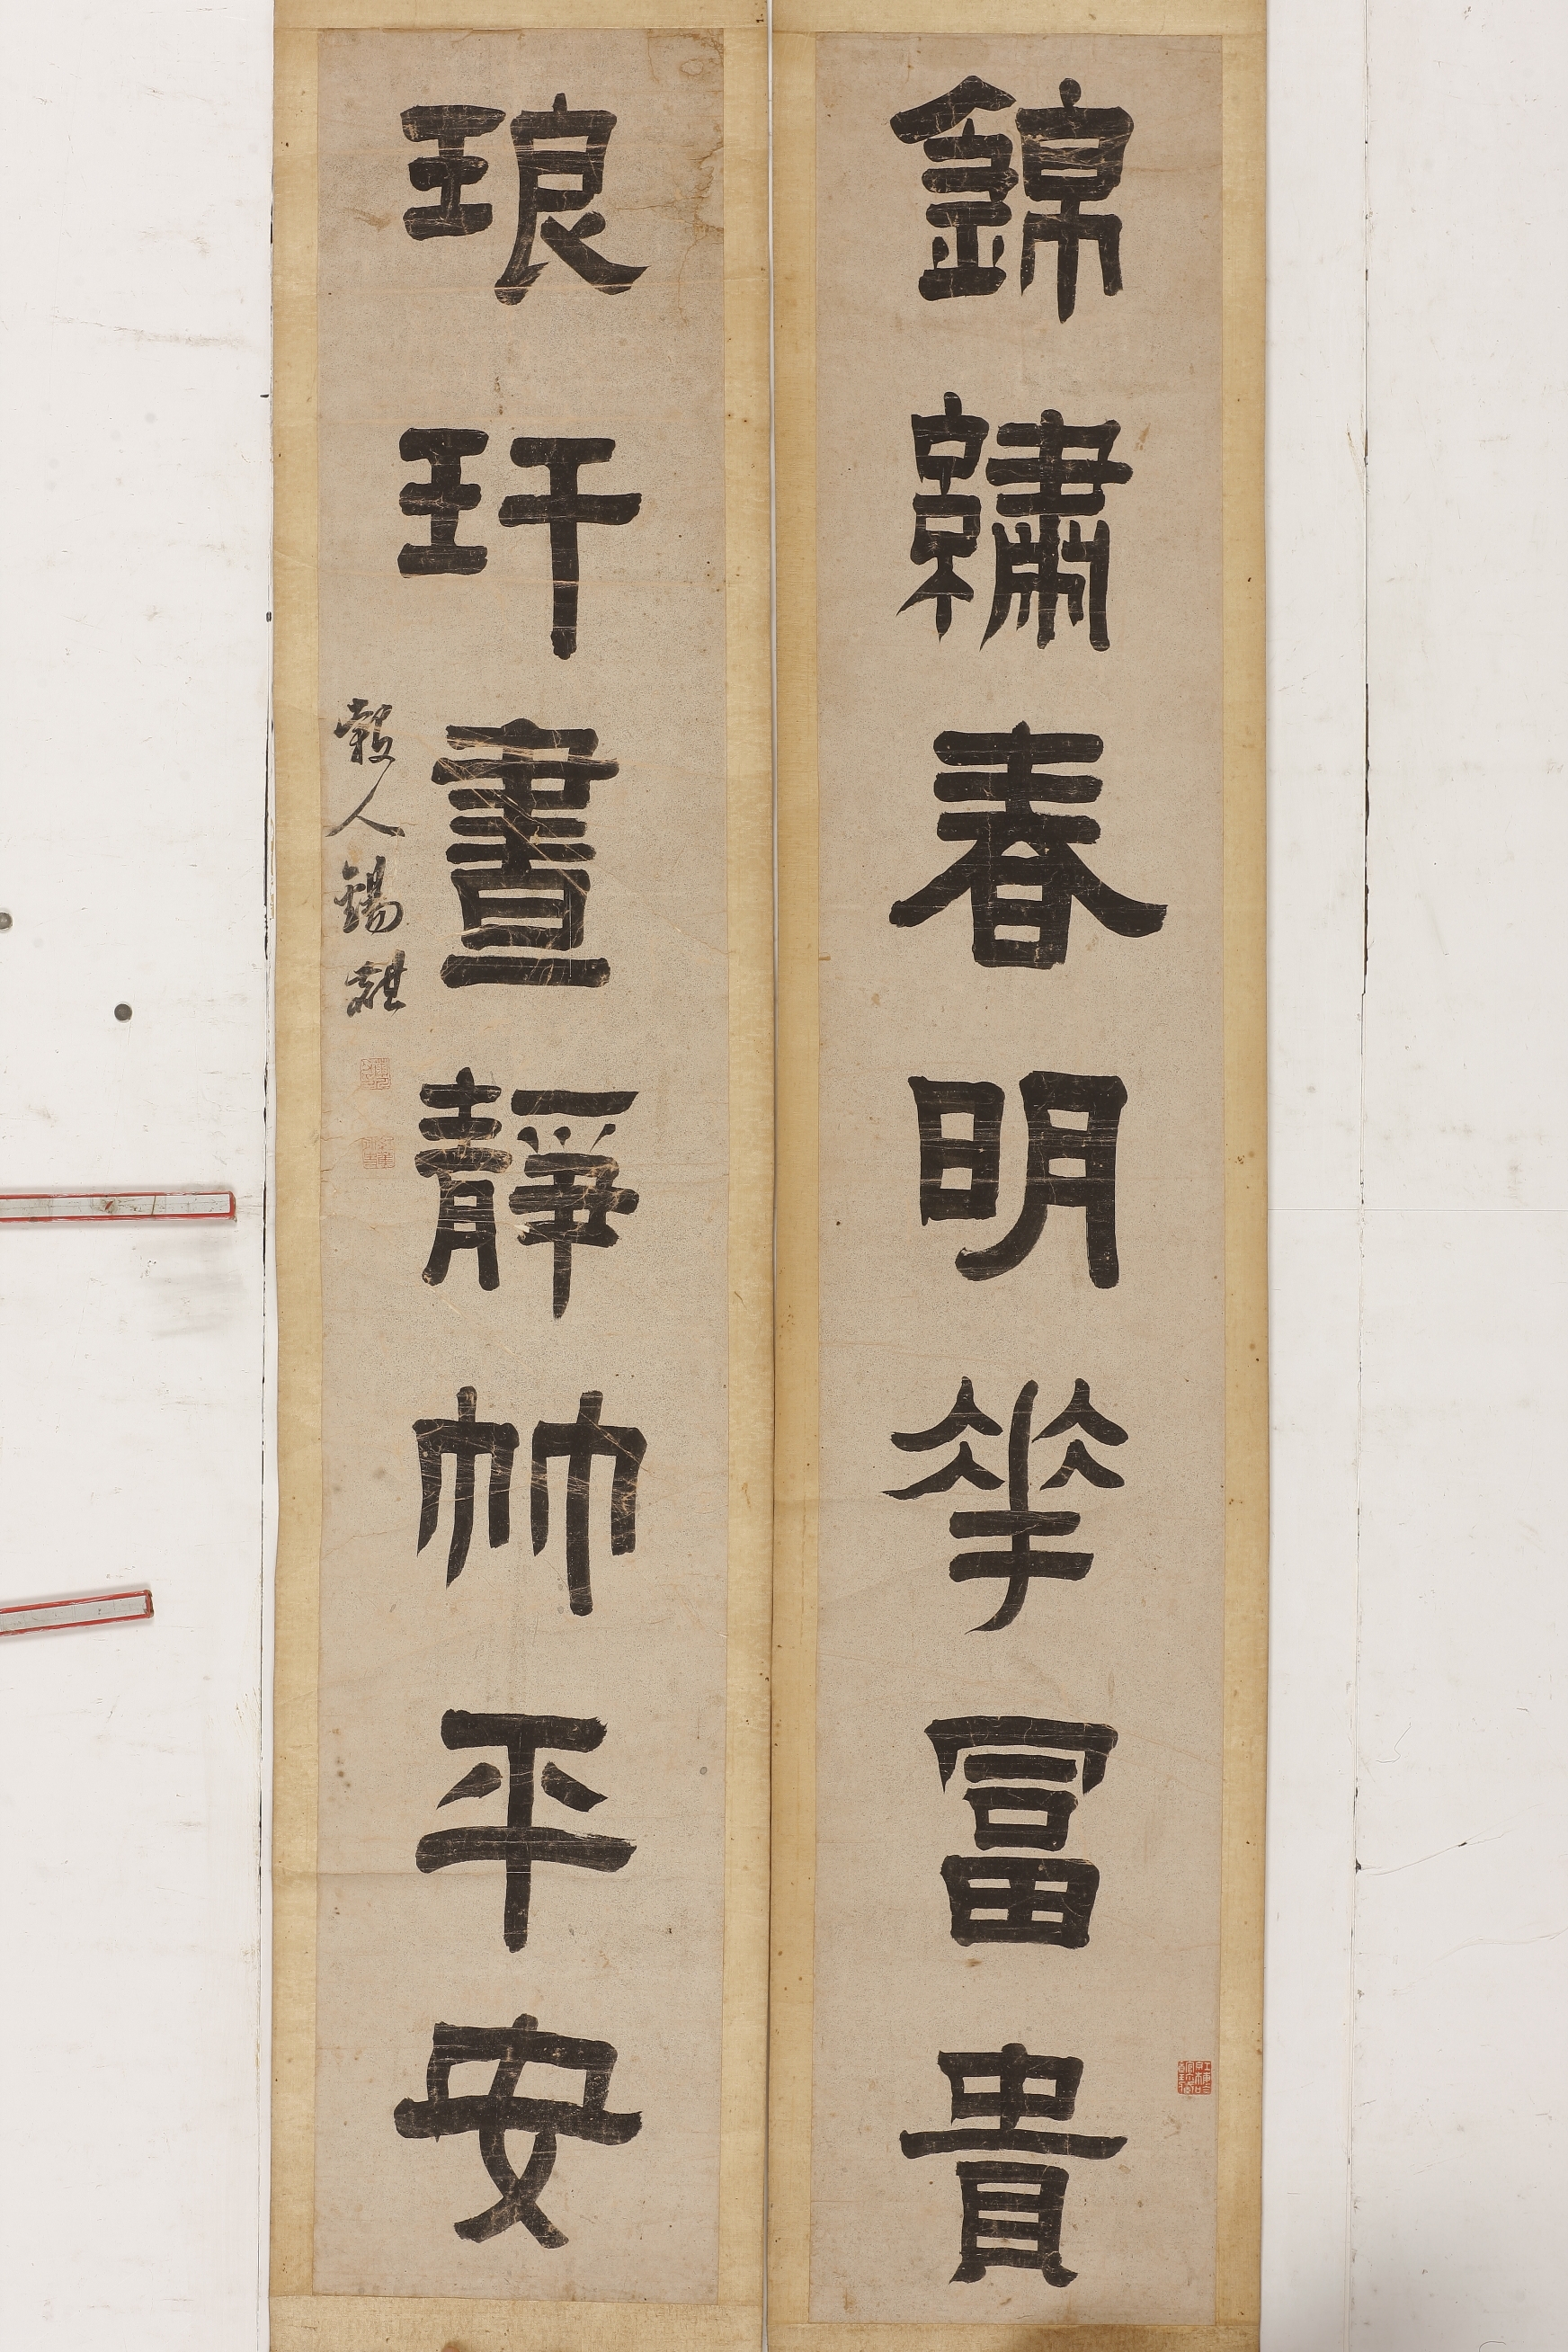 錦繡春明琴富貴
琅玕晝靜竹平安
穀人錫麒